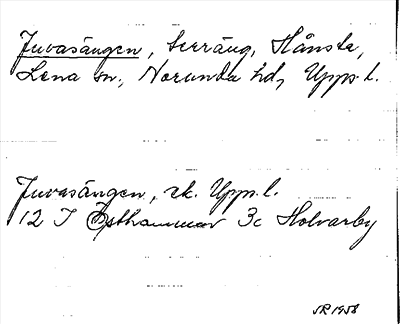 Juvasängen, terräng, Hånsta,
Lena sn, Norunda hd, Upps. l.
Juvasängen, ek. Upps. l.
12 I Östhammar 3c Holvarby
SR 1958